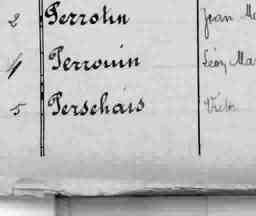 2 Perrotin Jean Ma
4 Perrouin Léon Mar
5 Perschais Victr